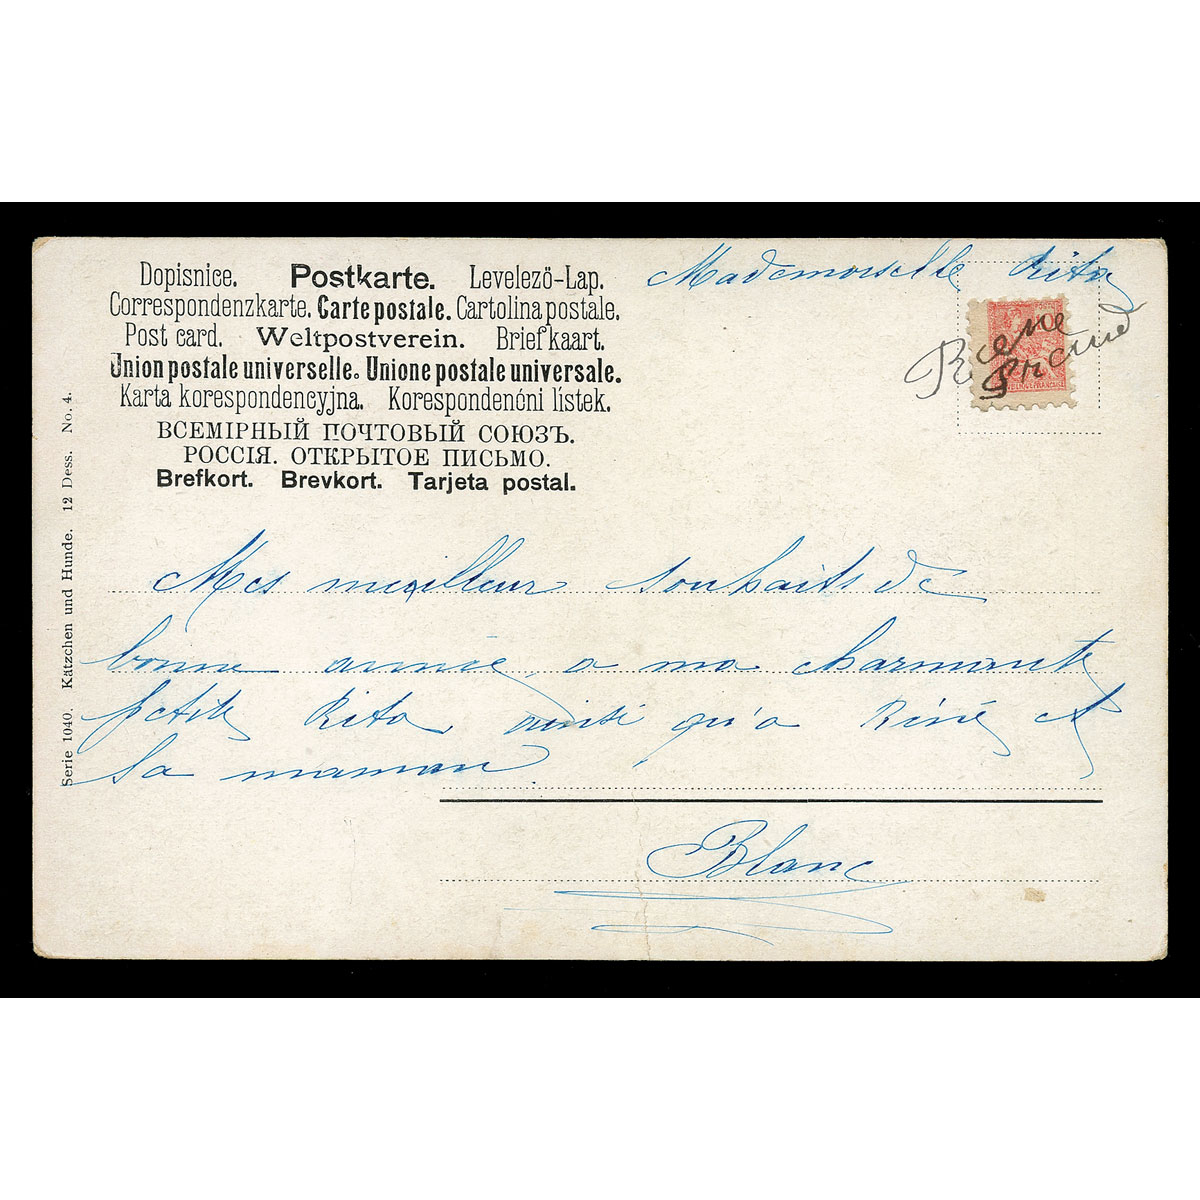 Mademoiselle Rita
Dopisnice. Postkarte. Levelezö-Lap.
Correspondenzkarte. Carte postale. Cartolina postale.
Post card. Weltpostverein. Briefkaart.
Union postale universelle. Unione postale universale.
Karta korespondencyjna. Korespondenćni listek.
ВСЕМІРНЫЙ ПОЧТОВЫЙ СОЮЗЪ.
РОССІЯ. ОТКРЫТОЕ ПИСЬМО.
Brefkort. Brevkort. Tarjeta postal.
Serie 1040. Kätzchen und Hunde. 12 Dess. No. 4.
Mes meilleur souhaits de
bonne année a ma charmante
petite Rita, ainsi qu'a Réné et
sa maman
Blanc